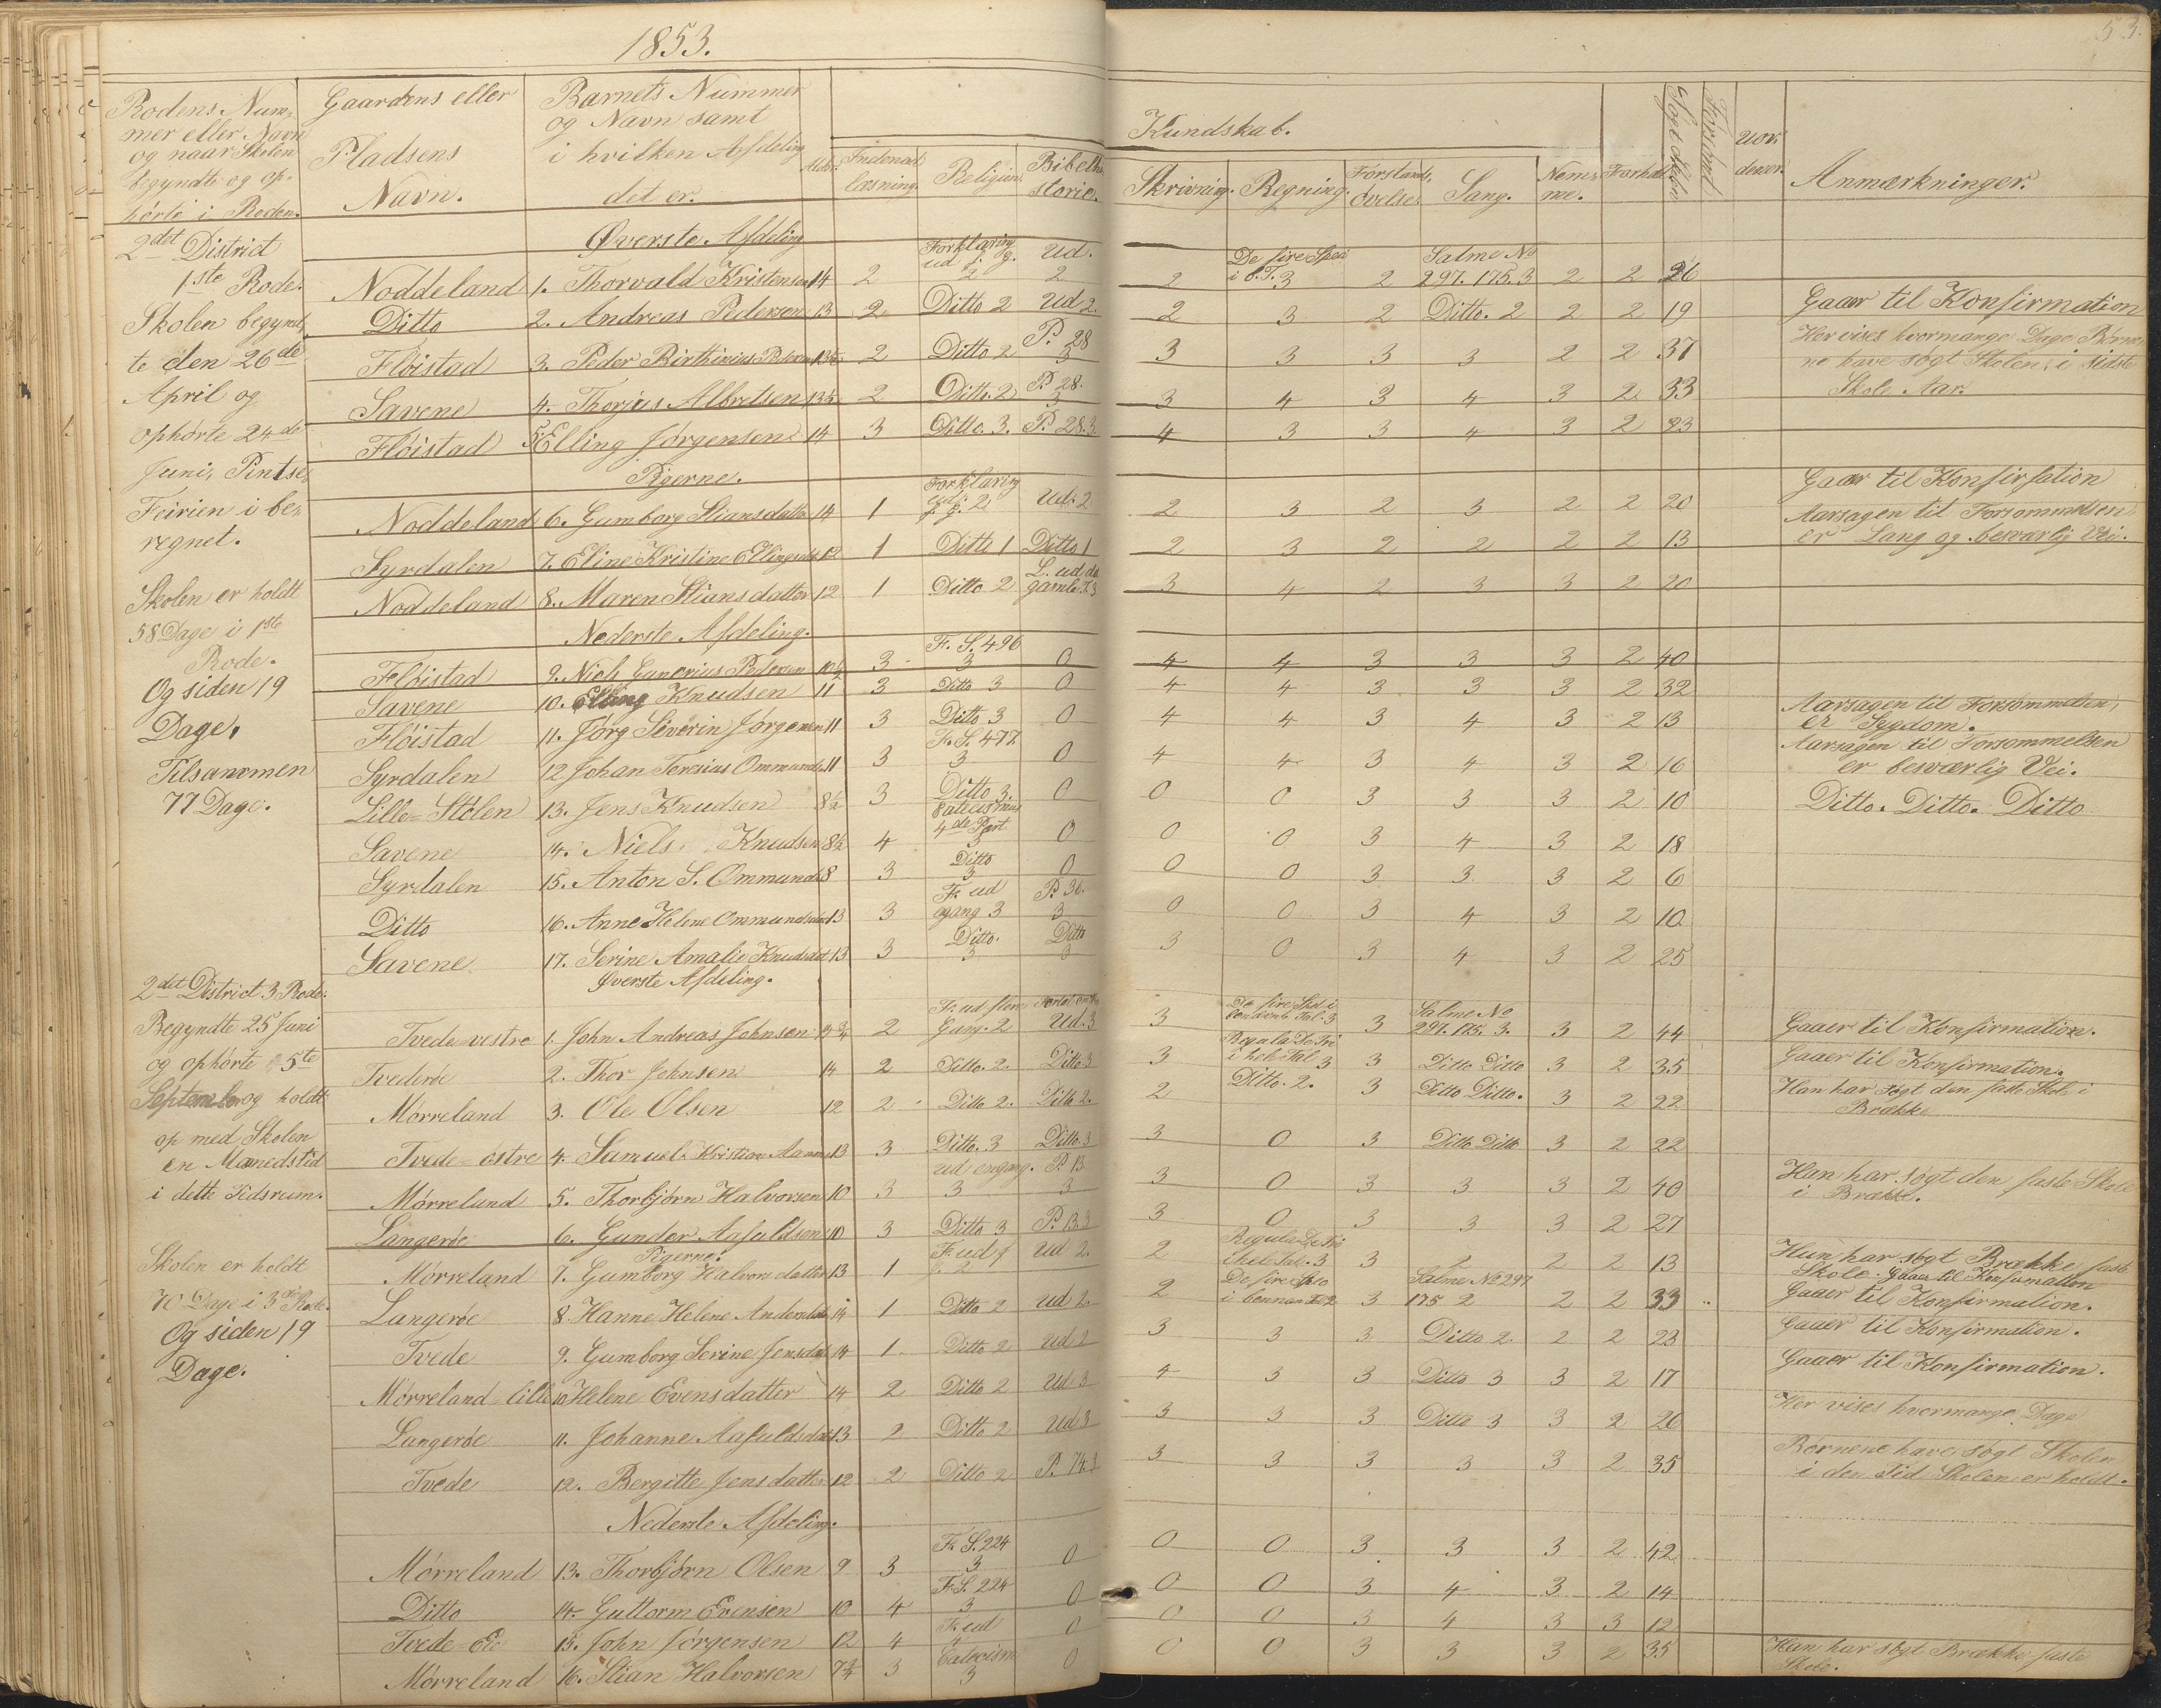 1853.
53.
Rodens Num-
mer eller Navn
og naar Skolen
begyndte og op-
hørte i Roden.
Gaardens eller
Pladsens
Navn.
Barnets Nummer
og Navn samt
i hvilken Afdeling
det er.
Alder.
Indenad
læsning.
Religion.
Bibelhi
storie.
Kundskab.
Skrivning. Regning. Forstands, øvelse. Sang. Nem- me. Forhold
Søgt Skole Forsømt
Anmærkninger.
2det District
1ste Rode.
Skolen begynd,
te den 26de
April og
ophørte 24de
Juni, Pintse,
Feirien i be,
regnet.
Skolen er holdt
58 Dage i 1ste
Rode.
Og siden 19
Dage.
Tilsammen
77 Dage.
Øverste Afdeling
Noddeland 1. Thorvald Kristensen 14 2 Forklaring ud f. g. 2 Ud. 2 2 De fire Spec i b. T. 3 2 Salme No 297. 175. 3 2 2 26
Ditto 2. Andreas Pedersen 13 2 Ditto 2 Ud 2. 2 3 2 Ditto. 2 2 2 19 Gaaer til Konfirmation
Fløistad 3. Peder Birthinius Pedersen 13½ 2 Ditto 2 P. 28 3 3 3 3 3 2 2 37 Her vises hvormange Dage Børne,
ne have søgt Skolen, i sidste
Savene 4. Thorjus Albretsen 13½ 2 Ditto. 2 P. 28. 3 3 4 3 4 3 2 33 Skole Aar.
Fløistad 5 Elling Jørgensen 14 3 Ditto. 3. P. 28. 3. 4 3 3 4 3 2 23
Pigerne.
Noddeland 6. Gumborg Stiansdatter 14 1 Forklaring ud f. g. 2 Ud. 2 2 3 2 3 2 2 20 Gaaer til Konfirfation
Syrdalen 7. Eline Kristine Ellingsdat 12 1 Ditto 1 Ditto 1 2 3 2 2 2 2 13 Aarsagen til Forsømmelsen,
er Lang og besværlig Vei.
Noddeland 8. Maren Stiansdatter 12 1 Ditto 2 L. ud, de gamle T. 3 3 4 2 3 3 2 20
Nederste Afdeling.
Fløistad 9. Niels Gunerius Pedersen 10½ 3 F. S. 496 3 0 4 4 3 3 3 2 40
Savene 10. Elling Knudsen 11 3 Ditto 3 0 4 4 3 3 3 2 32
Fløistad 11. Jørg Severin Jørgensen 11 3 Ditto 3 0 4 4 3 4 3 2 13 Aarsagen til Forsømmelsen,
er Sygdom.
Syrdalen 12 Johan Teresius Ommunds 11 3 F. S. 477. 3 0 4 4 3 4 3 2 16 Aarsagen til Forsømmelsen
er besværlig Vei.
Lille-Stølen 13. Jens Knudsen 8½ 3 Ditto 3. 0 0 0 3 3 3 2 10 Ditto. Ditto. Ditto
Savene 14. Niels Knudsen 8½ 4 4de Part 3 0 0 0 3 4 3 2 18
Syrdalen 15. Anton S. Ommunds 8 3 Ditto 3 0 0 0 3 3 3 2 6
Ditto 16. Anne Helene Ommundsdat 13 3 F. ud 3 P. 36. 3 0 0 3 4 3 2 10
Savene 17. Serine Amalie Knudsdat 13 3 Ditto. 3 Ditto 3 3 0 3 4 3 2 25
2det District 3 Rode.
Begyndte 25 Juni
og ophørte 5te
September og holdt
op med Skolen
en Maanedstid
i dette Tidsrum.
Skolen er holdt
70 Dage i 3die Rode.
Og siden 19
Dage.
Øverste Afdeling.
Tvede-vestre 1. John Andreas Johnsen 14¾ 2 F. ud flere Gang. 2 Ud. 3 3 3 Salme No 297. 175. 3. 3 2 44 Gaaer til Konfirmation.
Tvederøe 2. Thor Johnsen 14 2 Ditto. 2. Ditto 3 3 Regula De Tri i hele Tal 3 3 Ditto Ditto 3 2 35 Gaaer til Konfirmation.
Mørreland 3. Ole Olsen 12 2 Ditto 2. Ditto 2. 2 Ditto. 2. 3 Ditto Ditto. 3 2 22 Han har søgt den faste Skole i
Brække
Tvede-østre 4. Samuel Kristian 13 3 Ditto. 3 Ditto. 3 3 0 3 Ditto Ditto 3 2 22
Mørrelund 5. Thorbjørn Halvorsen 10 3 ud engang. 3 P. 13 3 3 0 3 3 3 2 40 Han har søgt den faste Skole
i Brække.
Langerøe 6. Gunder Aasuldsen 10 3 Ditto 3 P. 13 3 3 0 3 3 3 2 27
Pigerne.
Mørreland 7. Gumborg Halvorsdatter 13 1 F. ud f g. 2 Ud 2. 2 Regula De Tri i hele Tal. 3 3 2 2 2 13 Hun har søgt Brække faste
Skole. Gaaer til Konfirmation
Langerøe 8. Hanne Helene Andersdat 14 1 Ditto 2 Ud 2. 2 De fire Spec i bennævnte 2 3 Salme No 297 175 2 2 2 33 Gaaer til Konfirmation.
Tvede 9. Gumborg Serine Jensdat 14 1. Ditto 2 Ud 2 3 3 3 Ditto 2. 2 2 23 Gaaer til Konfirmation.
Mørreland-lille 10 Helene Evensdatter 14 2 Ditto 2 Ud 3 4 3 3 Ditto 3 3 2 17 Gaaer til Konfirmation.
Langerøe 11. Johanne Aasuldsdat 13 2 Ditto 2 Ud 3 3 3 3 Ditto 3 3 2 20 Her vises hvormange Dage
Tvede 12. Bergitte Jensdatter 12 2 Ditto 2 P. 74. 3 3 3 3 3 3 2 35 Børnene have søgt Skolen
i den Tid Skolen er holdt.
Nederste Afdeling.
Mørreland 13. Thorbjørn Olsen 9 3 F. S. 224 3 0 0 0 3 3 3 2 42
Ditto 14. Guttorm Evensen 10 4 F. S. 224 3 0 0 0 3 4 3 2 14
Tvede-Eie 15. John Jørgensen 12 4 F. ud 0 0 0 3 4 3 3 12
Mørreland 16. Stian Halvorsen 7¾ 3 Catecism 3 0 0 0 3 3 3 2 35 Han har søgt Brække faste
Skole.